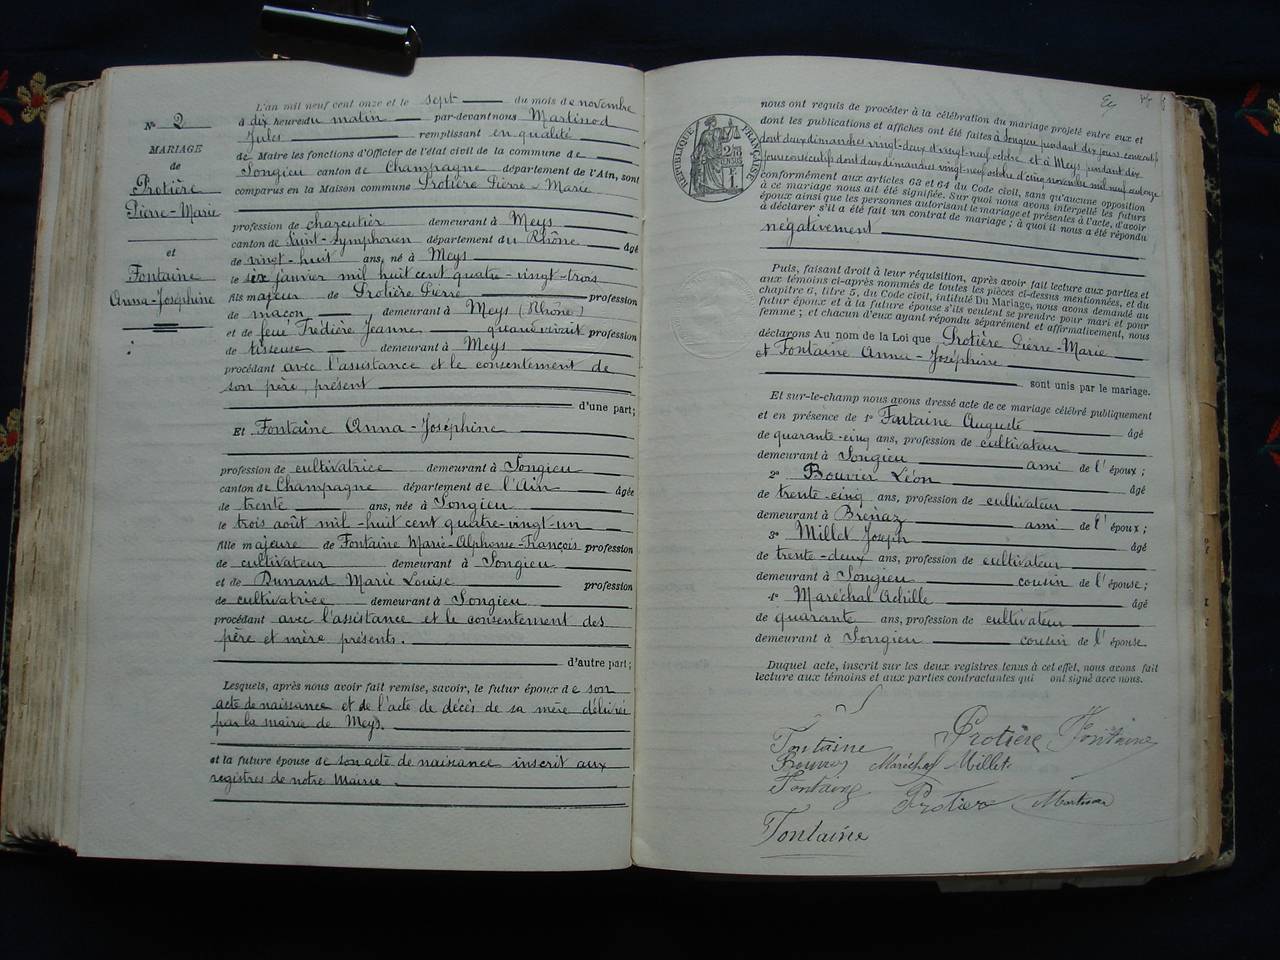 N° 2
MARIAGE
de
Protière
Pierre-Marie
et
Fontaine
Anna-Joséphine
L'an mil neuf cent onze et le sept du mois de novembre
à dix heures du matin par-devant nous Martinod
Jules remplissant en qualité
de Maire les fonctions d'Officier de l'état civil de la commune de
Songieu canton de Champagne département de l'Ain, sont
comparus en la Maison commune Protière Pierre-Marie
profession de charcutier demeurant à Meys
canton de Saint-Symphorien département du Rhône âgé
de vingt-huit ans, né à Meys
le six janvier mil huit cent quatre-vingt-trois
fils majeur de Protière Pierre profession
de maçon demeurant à Meys (Rhône)
et de feue Trédière Jeanne quand vivait profession
de tisseuse demeurant à Meys
procédant avec l'assistance et le consentement de
son père, présent
d'une part;
Et Fontaine Anna-Joséphine
profession de cultivatrice demeurant à Songieu
canton de Champagne département de l'Ain âgée
de trente ans, née à Songieu
le trois août mil-huit cent quatre-vingt-un
fille majeure de Fontaine Marie-Alphonse-François profession
de cultivateur demeurant à Songieu
et de Dunand Marie Louise profession
de cultivatrice demeurant à Songieu
procédant avec l'assistance et le consentement des
père et mère présents.
d'autre part;
Lesquels, après nous avoir fait remise, savoir, le futur époux de son
acte de naissance et de l'acte de décès de sa mère délivrés
par la mairie de Meys.
et la future épouse de son acte de naissance inscrit aux
registres de notre Mairie
RÉPUBLIQUE FRANÇAISE
nous ont requis de procéder à la célébration du mariage projeté entre eux et
dont les publications et affiches ont été faites à Songieu pendant dix jours consécutifs
dont deux dimanches vingt-deux et vingt-neuf octobre et à Meys pendant dix
jours consécutifs dont deux dimanches vingt-neuf octobre et cinq novembre mil neuf cent onze
conformément aux articles 63 et 64 du Code civil, sans qu'aucune opposition
à ce mariage nous ait été signifiée. Sur quoi nous avons interpellé les futurs
époux ainsi que les personnes autorisant le mariage et présentes à l'acte, d'avoir
à déclarer s'il a été fait un contrat de mariage; à quoi il nous a été répondu
négativement
Puis, faisant droit à leur réquisition, après avoir fait lecture aux parties et
aux témoins ci-après nommés de toutes les pièces ci-dessus mentionnées, et du
chapitre 6, titre 5, du Code civil, intitulé Du Mariage, nous avons demandé au
futur époux et à la future épouse s'ils veulent se prendre pour mari et pour
femme; et chacun d'eux ayant répondu séparément et affirmativement, nous
déclarons Au nom de la Loi que Protière Pierre-Marie
et Fontaine Anna-Joséphine
sont unis par le mariage.
Et sur-le-champ nous avons dressé acte de ce mariage célébré publiquement
et en présence de 1° Fontaine Auguste âgé
de quarante-cinq ans, profession de cultivateur
demeurant à Songieu ami de l'époux;
2° Bouvier Léon âgé
de trente-cinq ans, profession de cultivateur
demeurant à Brénaz ami de l'époux;
3° Millet Joseph âgé
de trente-deux ans, profession de cultivateur
demeurant à Songieu cousin de l'épouse;
4° Maréchal Achille âgé
de quarante ans, profession de cultivateur
demeurant à Songieu cousin de l'épouse
Duquel acte, inscrit sur les deux registres tenus à cet effet, nous avons fait
lecture aux témoins et aux parties contractantes qui ont signé avec nous.
Fontaine Protière Fontaine
Bouvier Maréchal Millet
Fontaine Protière Martinod
Fontaine